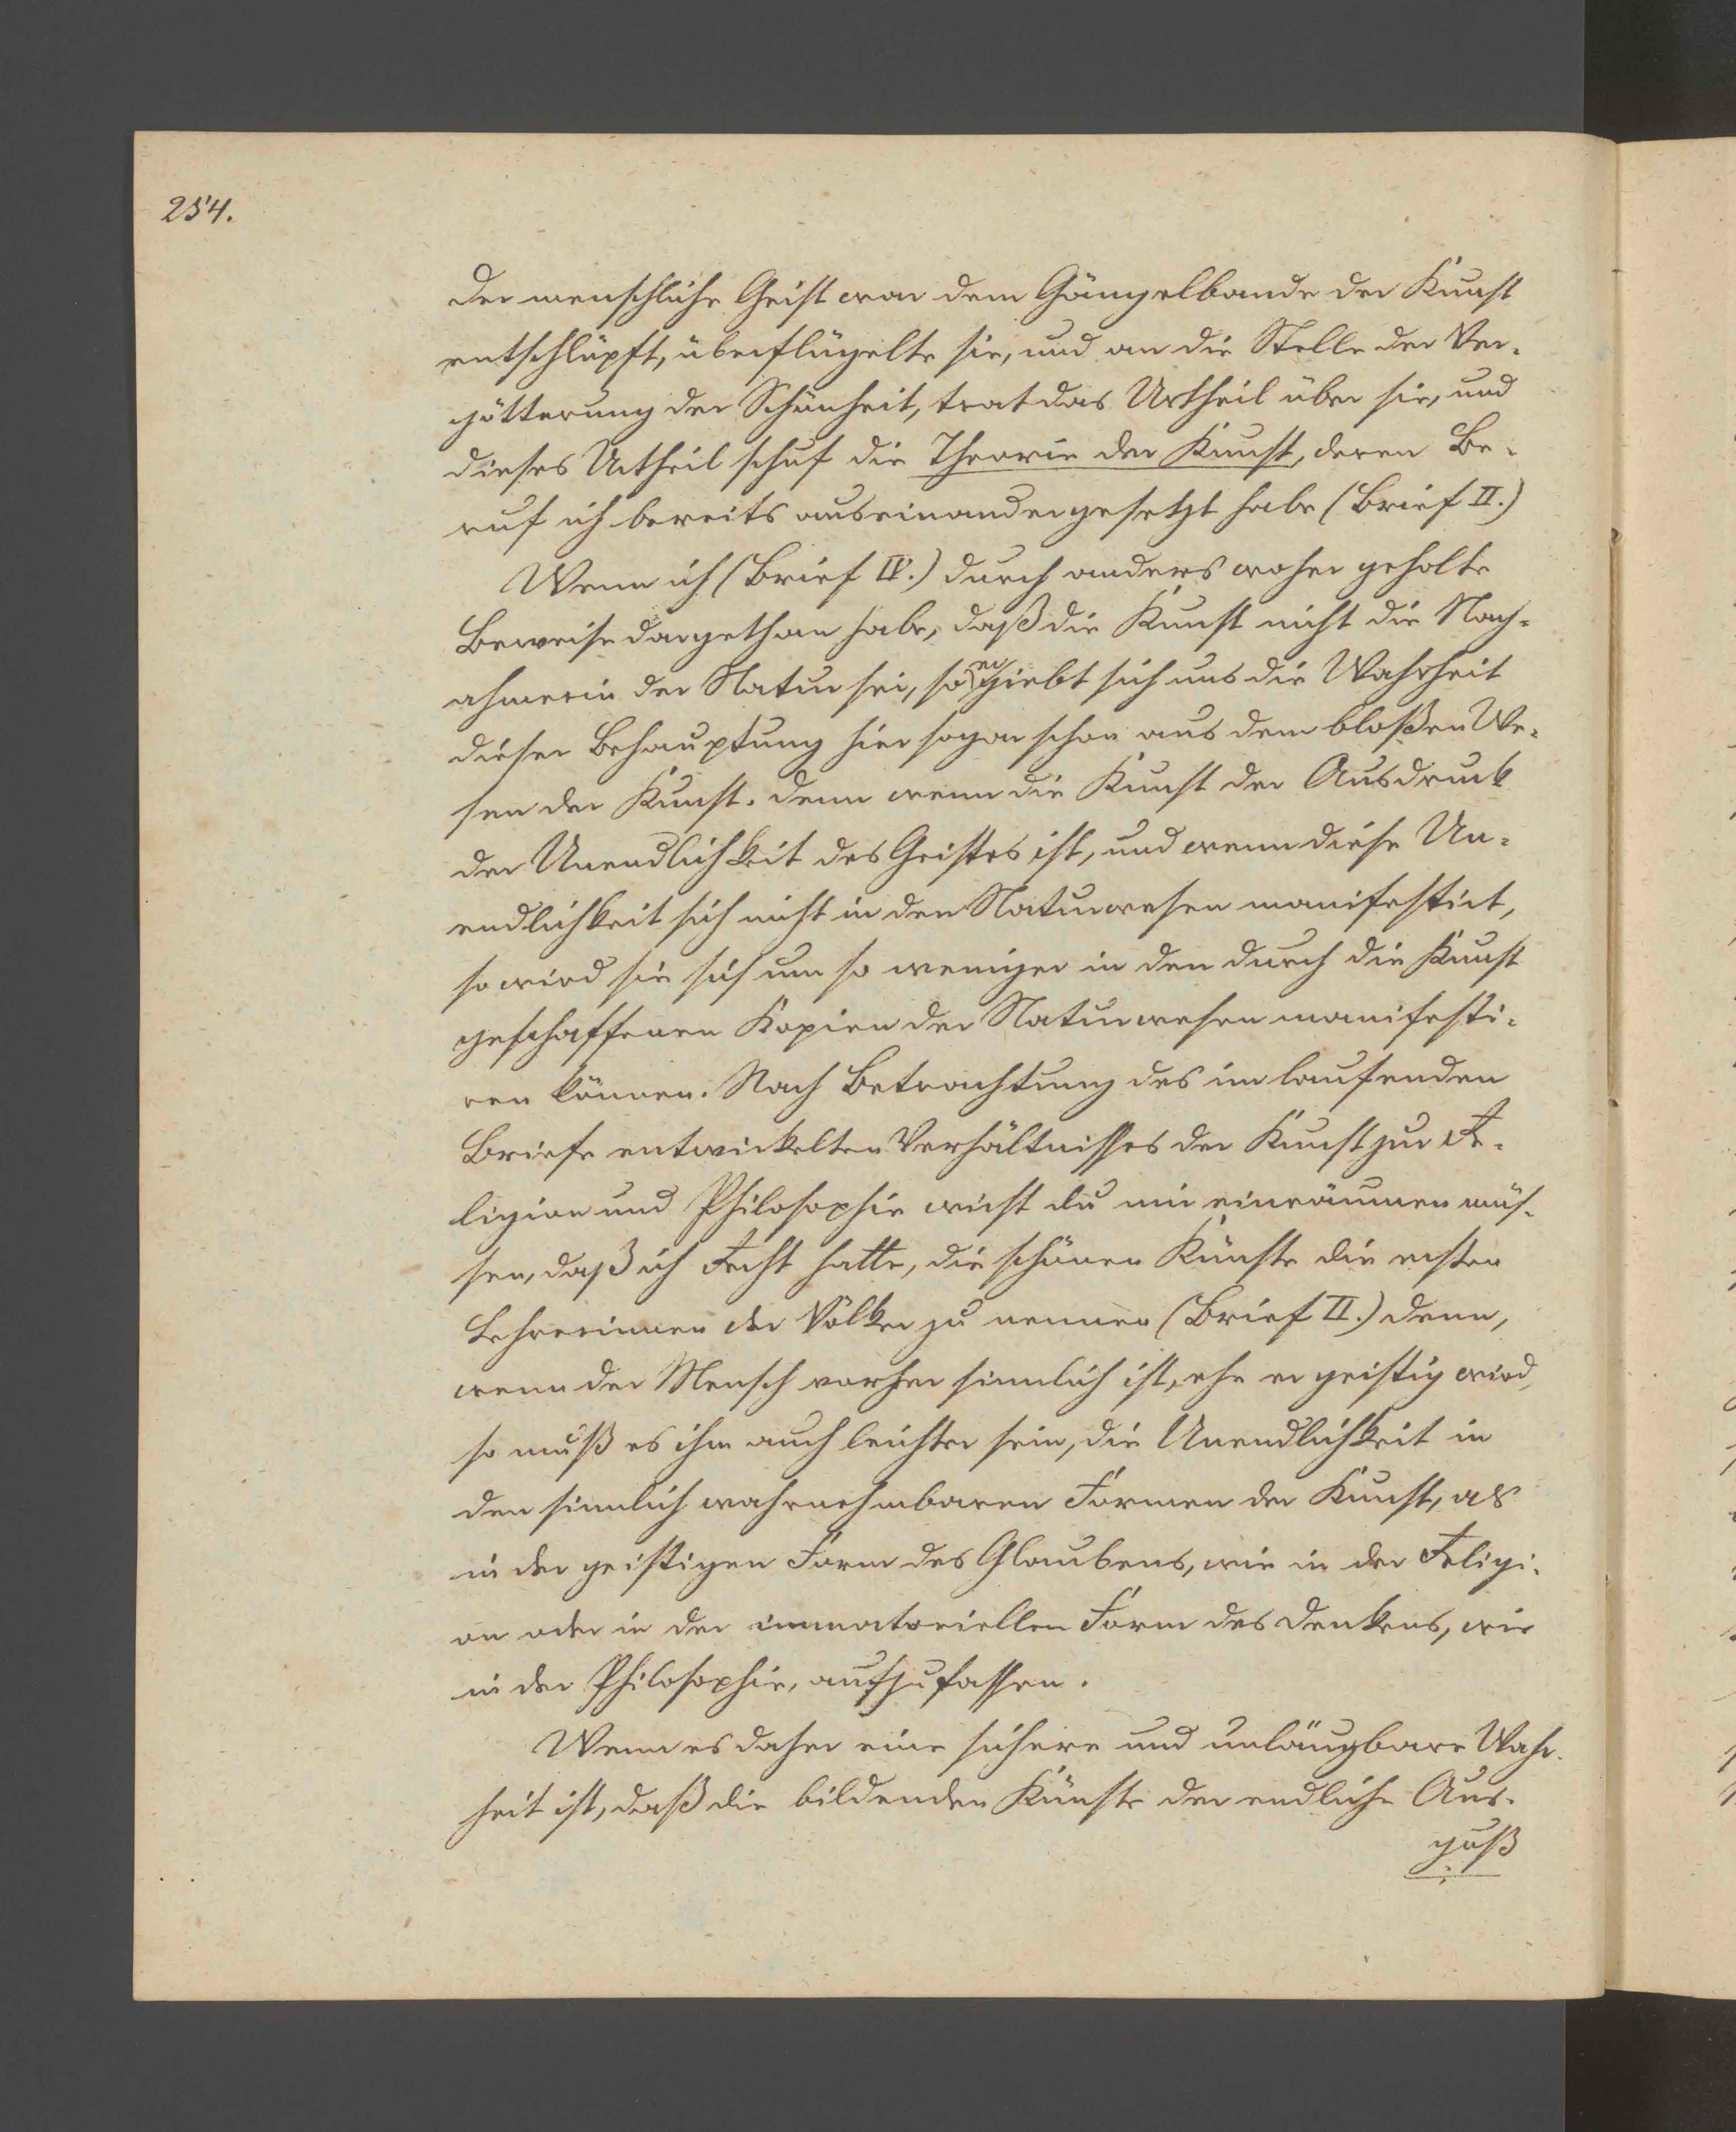 254.
der menschliche Geist war dem Gängelbande der Kunst
entschlüpft, überflügelte sie, und an die Stelle der Ver-
götterung der Schönheit, trat das Urtheil über sie, und
dieses Urtheil schuf die Theorie der Kunst, deren Be-
ruf ich bereits auseinandergesetzt habe (Brief II.)
Wenn ich (Brief IV.) durch anders woher geholte
Beweise dargethan habe, daß die Kunst nicht die Nach-
ahmerin der Natur sei, so ergiebt sich uns die Wahrheit
dieser Behauptung hier sogar schon aus dem bloßen We-
sen der Kunst. denn wenn die Kunst der Ausdruck
der Unendlichkeit des Geistes ist, und wenn diese Un-
endlichkeit sich nicht in den Naturwesen manifestirt,
so wird sie sich um so weniger in den durch die Kunst
geschaffenen Kopien der Naturwesen manifesti-
ren können. Nach Betrachtung des im laufenden
Briefe entwickelten Verhältnisses der Kunst zur Re-
ligion und Philosophie wirst du mir einräumen müs-
sen, daß ich Recht hatte, die schönen Künste die ersten
Lehrerinnen der Völker zu nennen (Brief II.) denn,
wenn der Mensch vorher sinnlich ist, ehe er geistig wird,
so muß es ihm auch leichter sein, die Unendlichkeit in
den sinnlich wahrnehmbaren Formen der Kunst, als
in der geistigen Form des Glaubens, wie in der Religi-
on oder in der immateriellen Form des Denkens, wie
in der Philosophie, aufzufassen.
Wenn es daher eine sichere und unläugbare Wahr-
heit ist, daß die bildenden Künste der endliche Aus-
guß